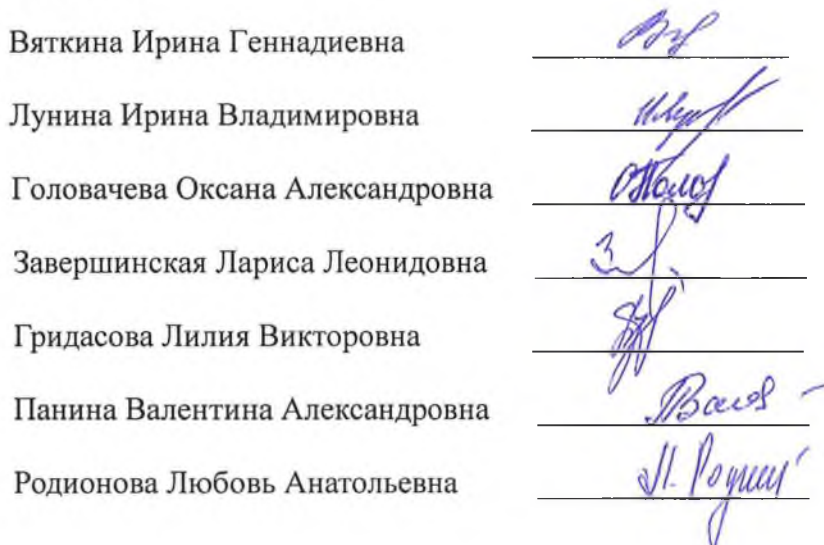 Вяткина Ирина Геннадиевна
Лунина Ирина Владимировна
Головачева Оксана Александровна
Завершинская Лариса Леонидовна
Гридасова Лилия Викторовна
Панина Валентина Александровна
Родионова Любовь Анатольевна